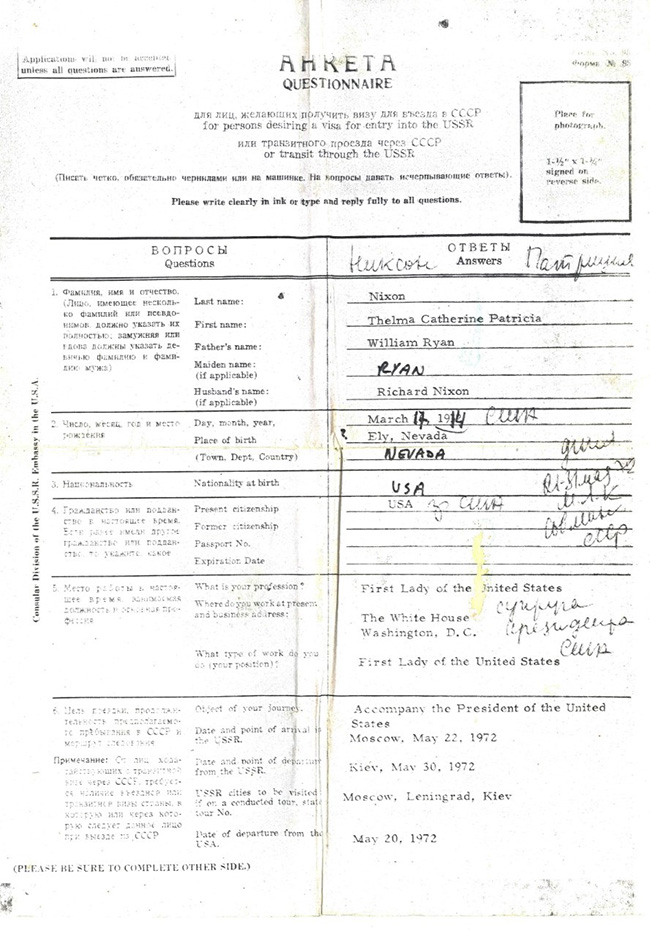 Applications will not be accepted
unless all questions are answered.
Форма № 85
АНКЕТА
QUESTIONNAIRE
для лиц, желающих получить визу для въезда в СССР
for persons desiring a visa for entry into the USSR
или транзитного проезда через СССР
or transit through the USSR
(Писать четко, обязательно чернилами или на машинке. На вопросы давать исчерпывающие ответы).
Please write clearly in ink or type and reply fully to all questions.
Place for
photograph.
1-½" x 1-½"
signed on
reverse side.
ВОПРОСЫ
Questions
ОТВЕТЫ
Answers
Никсон Патриция
1. Фамилия, имя и отчество.
(Лицо, имеющее несколь-
ко фамилий или псевдо-
нимов должно указать их
полностью; замужняя или
вдова должны указать де-
вичью фамилию и фами-
лию мужа)
Last name:
Nixon
First name:
Thelma Catherine Patricia
Father's name:
William Ryan
Maiden name:
(if applicable)
RYAN
Husband's name:
(if applicable)
Richard Nixon
2. Число, месяц, год и место
рождения
Day, month, year,
March 17 1914 США
Place of birth
? Ely, Nevada
(Town, Dept, Country)
NEVADA
3. Национальность
Nationality at birth
USA
4. Гражданство или поддан-
ство в настоящее время.
Если ранее имели другое
гражданство или поддан-
ство, то укажите, какое
Present citizenship
USA гр США
Former citizenship
Passport No.
Expiration Date
СССР
5. Место работы в настоя-
щее время, занимаемая
должность и основная про-
фессия
What is your profession?
First Lady of the United States
Where do you work at present
and business address:
The White House
Washington, D.C.
супруга
президента
США
What type of work do you
do (your position)?
First Lady of the United States
6. Цель поездки, продолжи-
тельность предполагаемо-
го пребывания в СССР и
маршрут следования
Примечание: От лиц, хода-
тайствующих о транзитной
визе через СССР, требует-
ся наличие въездной или
транзитной визы страны, в
которую или через кото-
рую следует данное лицо
при выезде из СССР
Object of your journey.
Accompany the President of the United
States
Date and point of arrival in
the USSR.
Moscow, May 22, 1972
Date and point of departure
from the USSR.
Kiev, May 30, 1972
USSR cities to be visited;
if on a conducted tour, state
tour No.
Moscow, Leningrad, Kiev
Date of departure from the
USA.
May 20, 1972
(PLEASE BE SURE TO COMPLETE OTHER SIDE.)
Consular Division of the U.S.S.R. Embassy in the U.S.A.